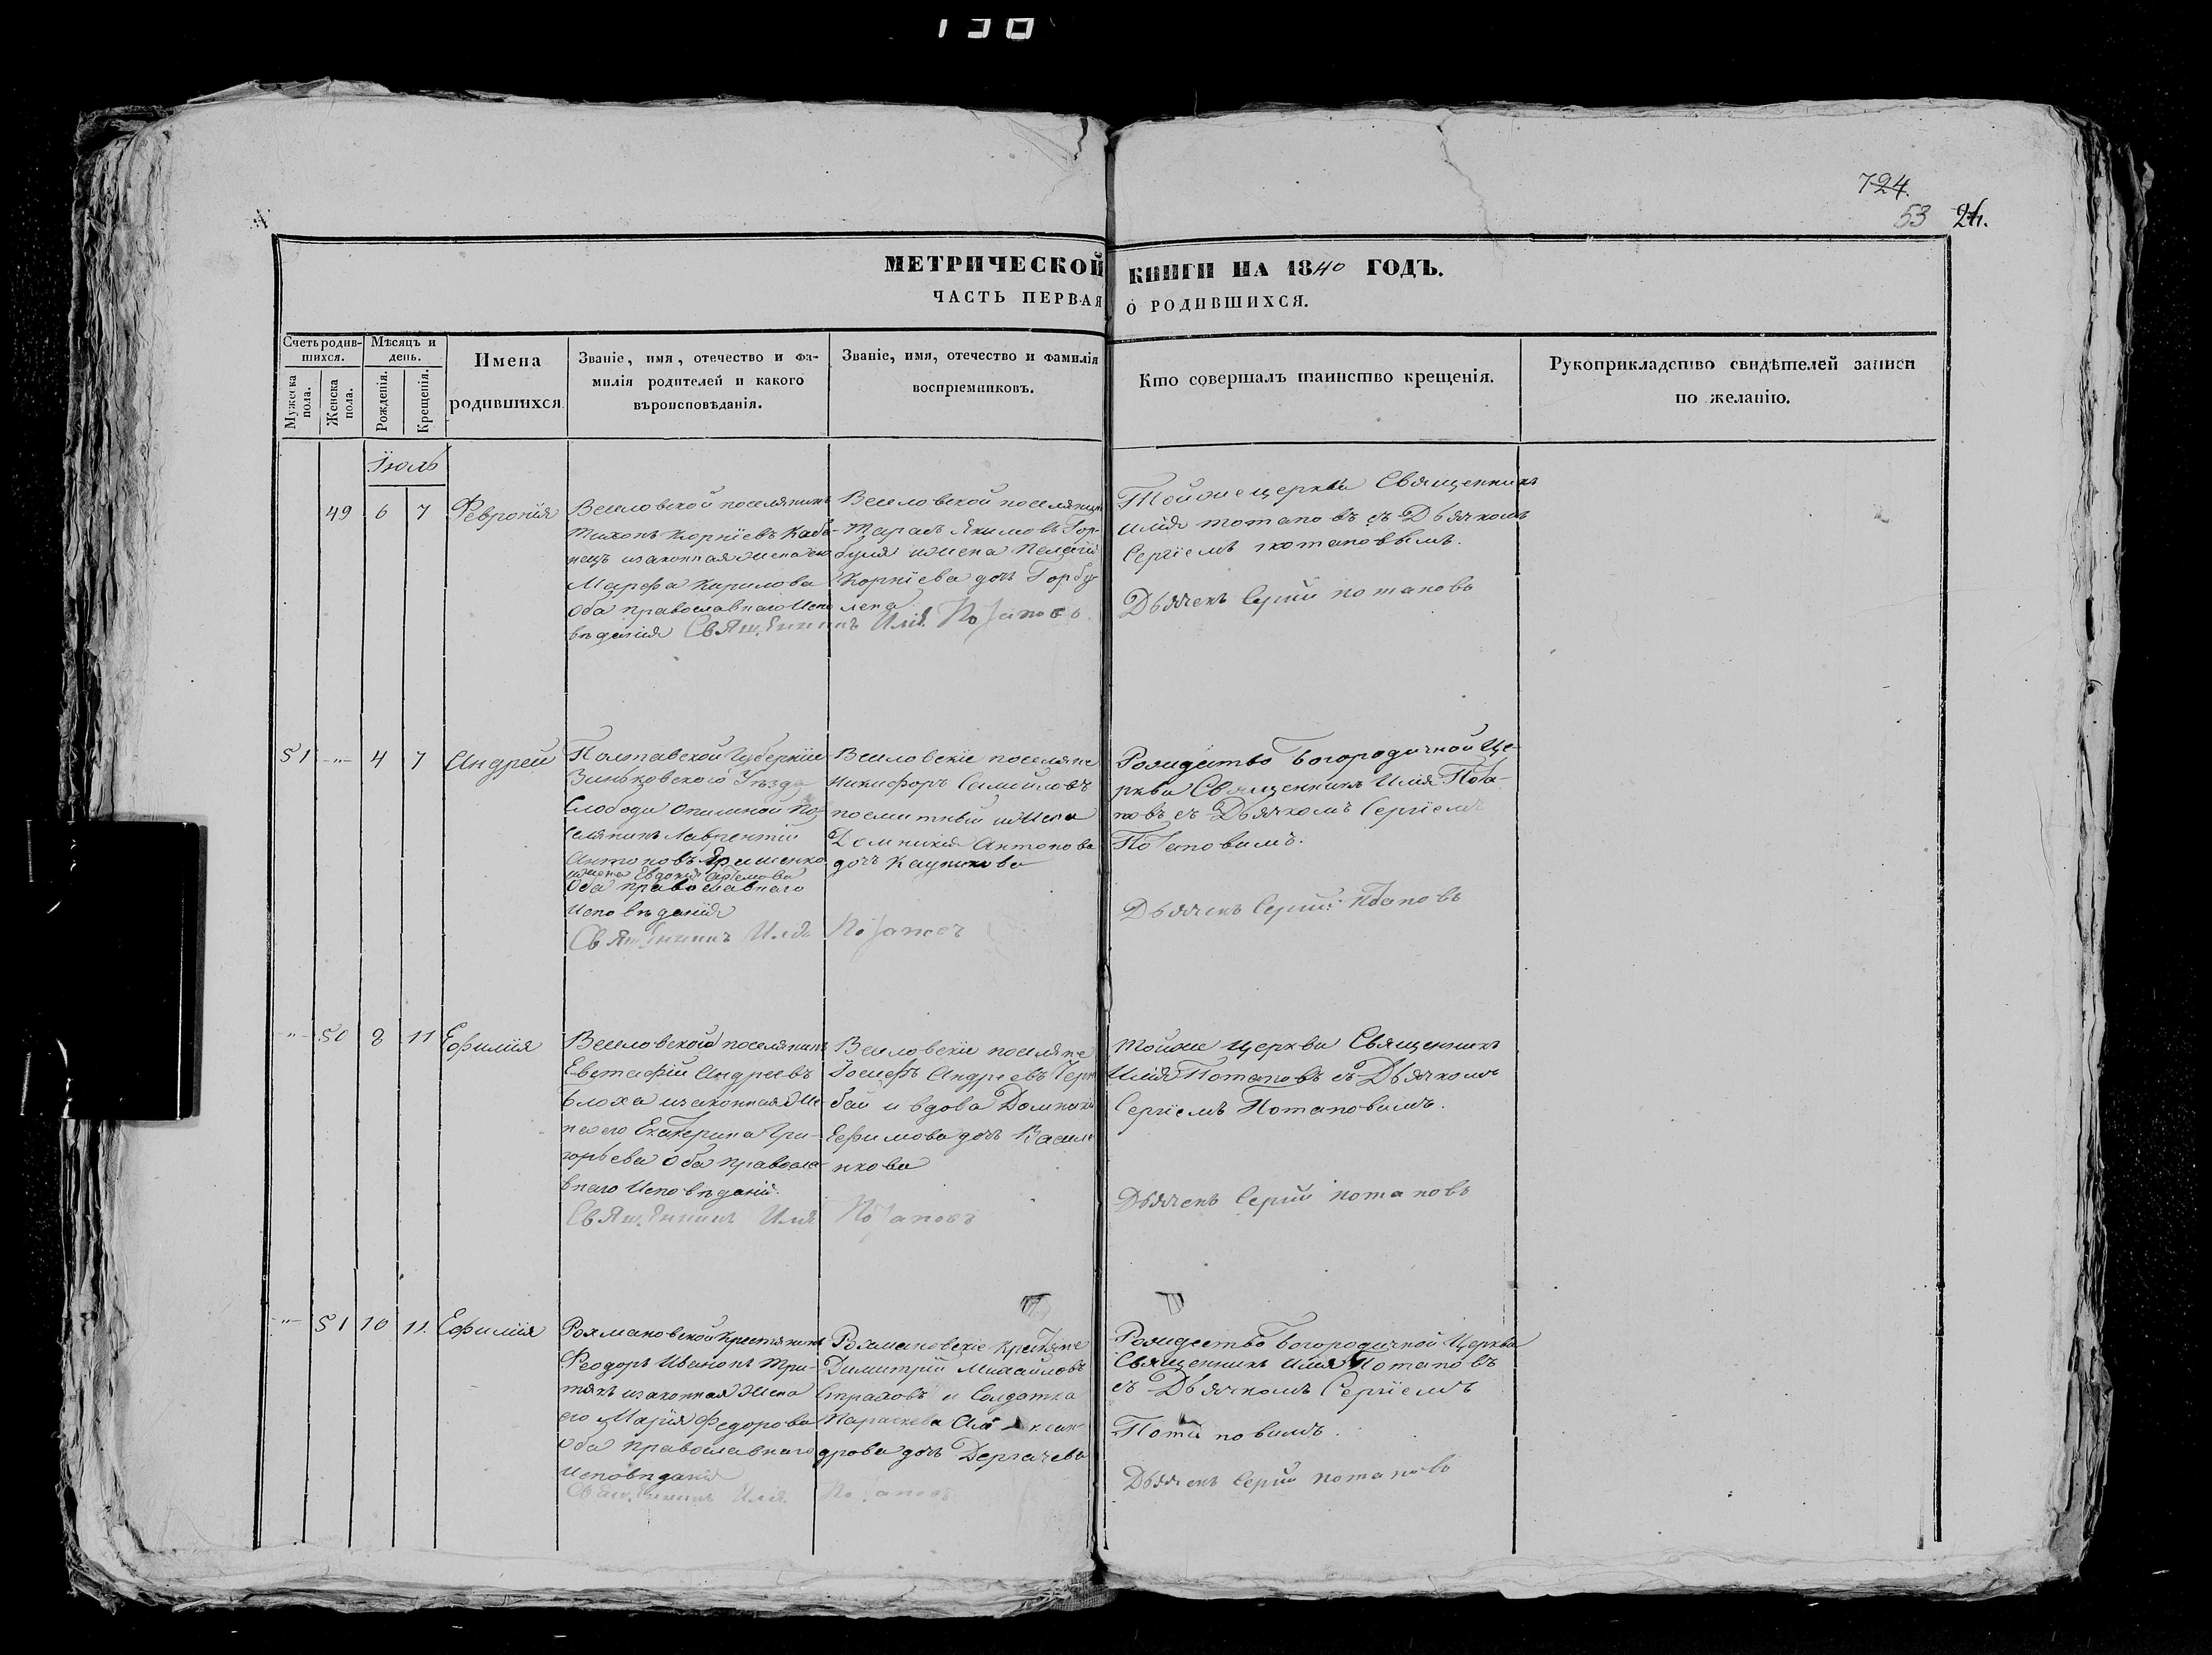 130
724.
53 26.
МЕТРИЧЕСКОЙ КНИГИ НА 1840 ГОДЪ.
ЧАСТЬ ПЕРВАЯ О РОДИВШИХСЯ.
Счетъ родив-
шихся.
Мужеска
пола.
Женска
пола.
Мѣсяцъ и
день.
Рожденія.
Крещенія.
Имена
родившихся
Званіе, имя, отечество и фа-
милія родителей и какого
вѣроисповѣданія.
Званіе, имя, отечество и фамилія
воспріемниковъ.
Кто совершалъ таинство крещенія.
Рукоприкладство свидѣтелей записи
по желанію.
Іюль
49 6 7 Февронія
Веиловской поселянинъ
Тихонъ Корніевъ Каба-
нецъ изаконная жена его
Марфа Кирилова
Оба православнаго Испо
вѣданія Священникъ Илія Потаповъ
Веиловской поселянинъ
Тарасъ Якимовъ Гор-
буля ижена Пелагія
Корніева дочь Горбу
лена
Тойже церкви Священникъ
Илія потаповъ съ Дьячкомъ
Сергіемъ потаповымъ.
Дьячекъ Сергій потаповъ
51 -"- 4 7 Андрей
Полтавской Губерніи
Зиньковского Уѣзда
Слободи Опишной По-
селянинъ Лаврентій
Антоновъ
ижена Евдокія
Оба православнаго
Исповѣданія
Священникъ Илія Потаповъ
Веиловскіе поселяне
Никифоръ Самойловъ
ижена
Домникія Антонова
дочь
Рождество Богородичной Це-
ркви Священникъ Илія Пота-
повъ съ Дьячкомъ Сергіемъ
Потаповимъ.
Дьячекъ Сергій Потаповъ
-"- 50 8 11 Ефимія
Веиловской поселянинъ
Евстафій Андреевъ
Блоха изаконная же-
на его Екатерина Гри-
горьева Оба православ-
внаго Исповѣданія.
Священникъ Илія Потаповъ
Веиловскіе поселяне
Іосифъ Андреевъ
бай и вдова Домникія
Ефимова дочь Василе
нкова
Тойже церкви Священникъ
Илія Потаповъ съ Дьячкомъ
Сергіемъ Потаповимъ.
Дьячекъ Сергій потаповъ
-"- 51 10 11. Ефимія
Рохмановской Крестянинъ
Феодоръ Ивановъ Три-
тякъ изаконная Жена
его Марія Федорова
Оба православнаго
Исповѣданія
Священникъ Илія Потаповъ
Рохмановскіе Крестяне
Димитрій Михайловъ
Страховъ и Солдатка
Параскева Алексан-
дрова дочь Дергачева
Рождество Богородичной Церкви
Священникъ Илія Потаповъ
съ Дьячкомъ Сергіемъ
Потаповимъ.
Дьячекъ Сергій потаповъ